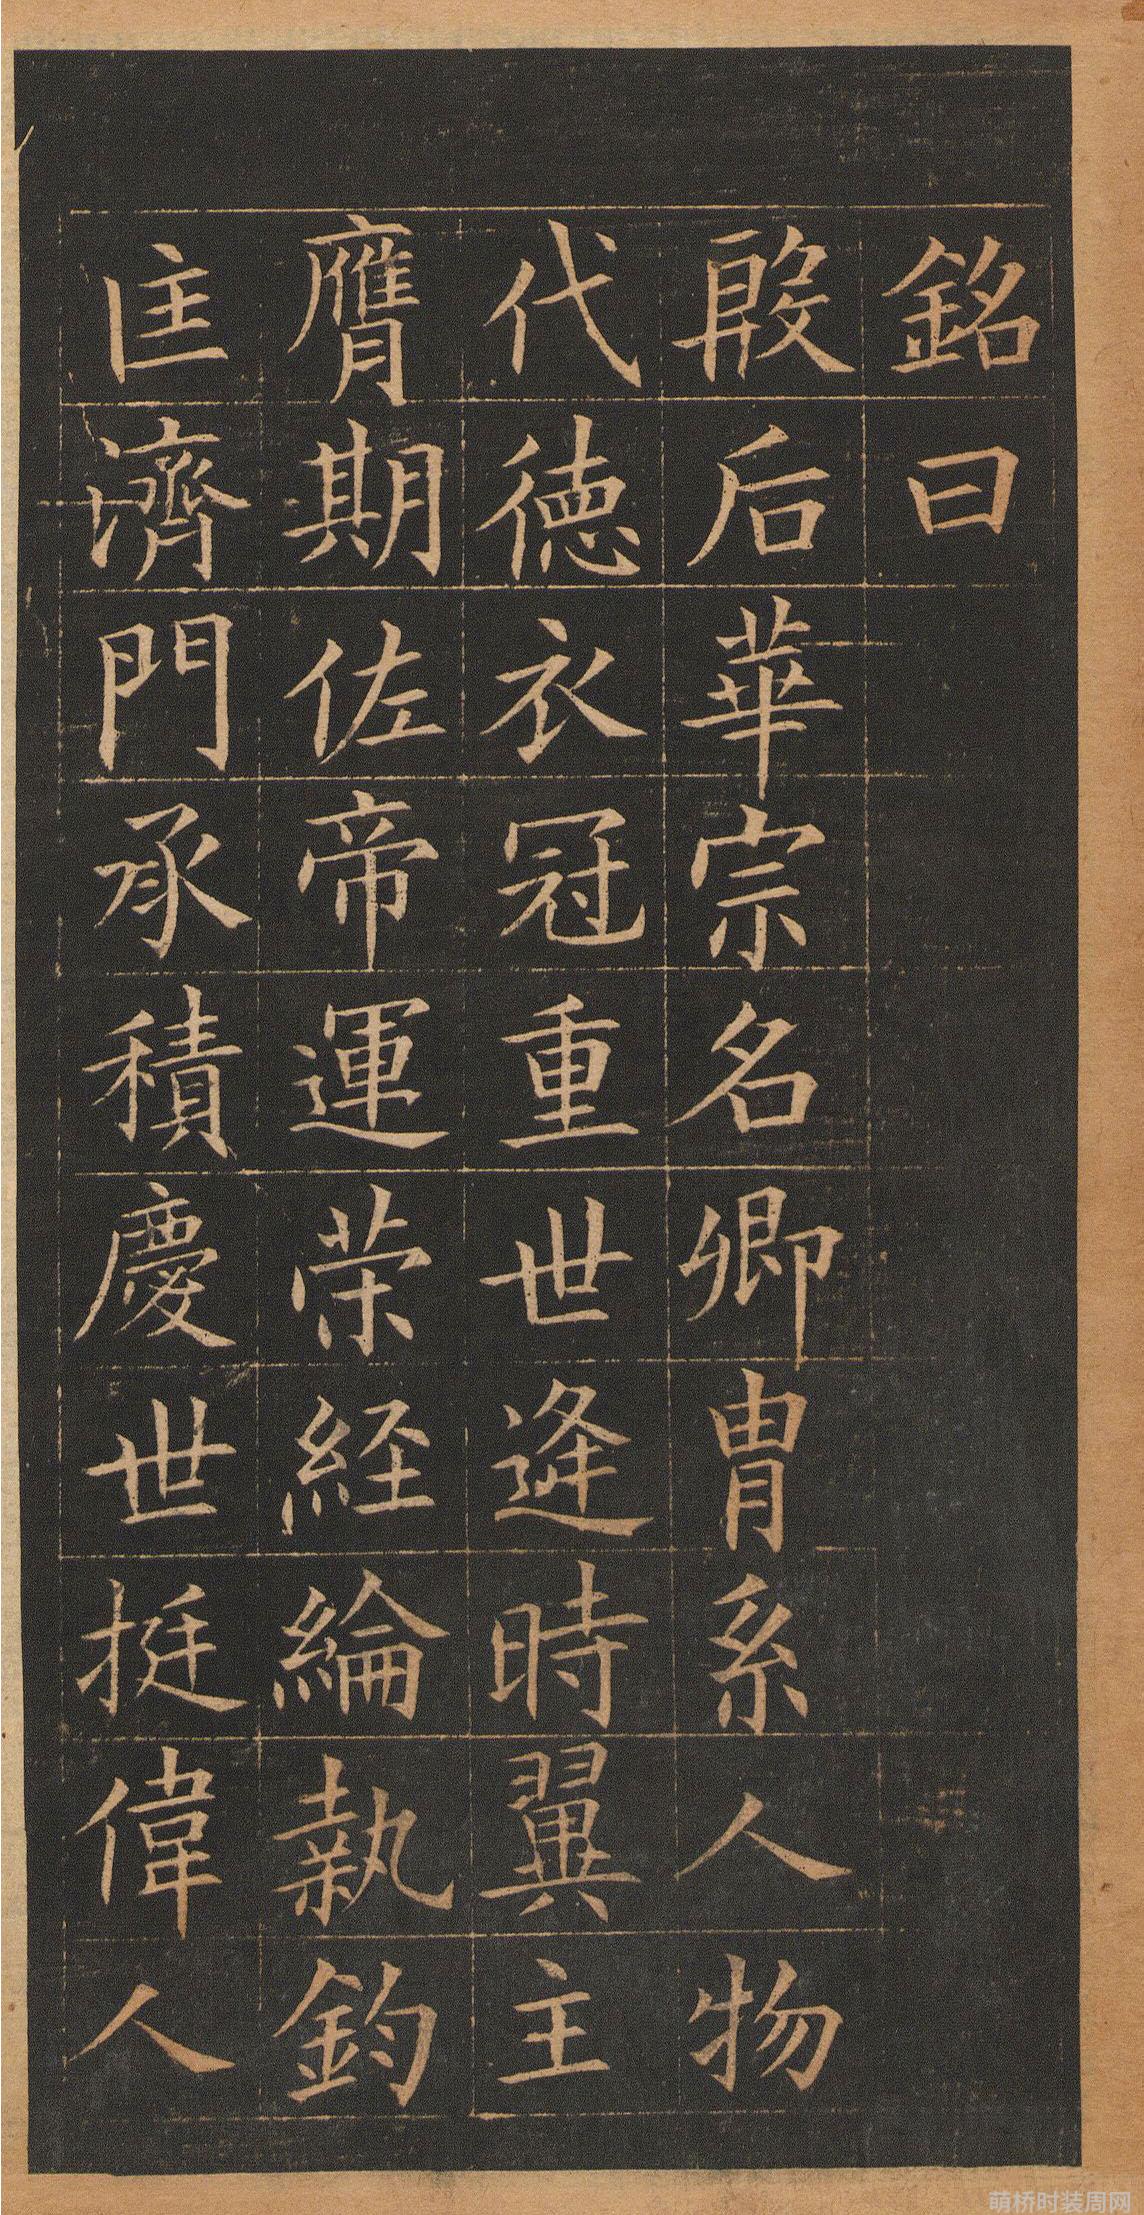 銘曰
殷后華宗名卿冑系人物
代德衣冠重世逢時翼主
膺期佐帝運荣経綸執鈞
匡濟門承積慶世挺偉人
萌桥时装周网